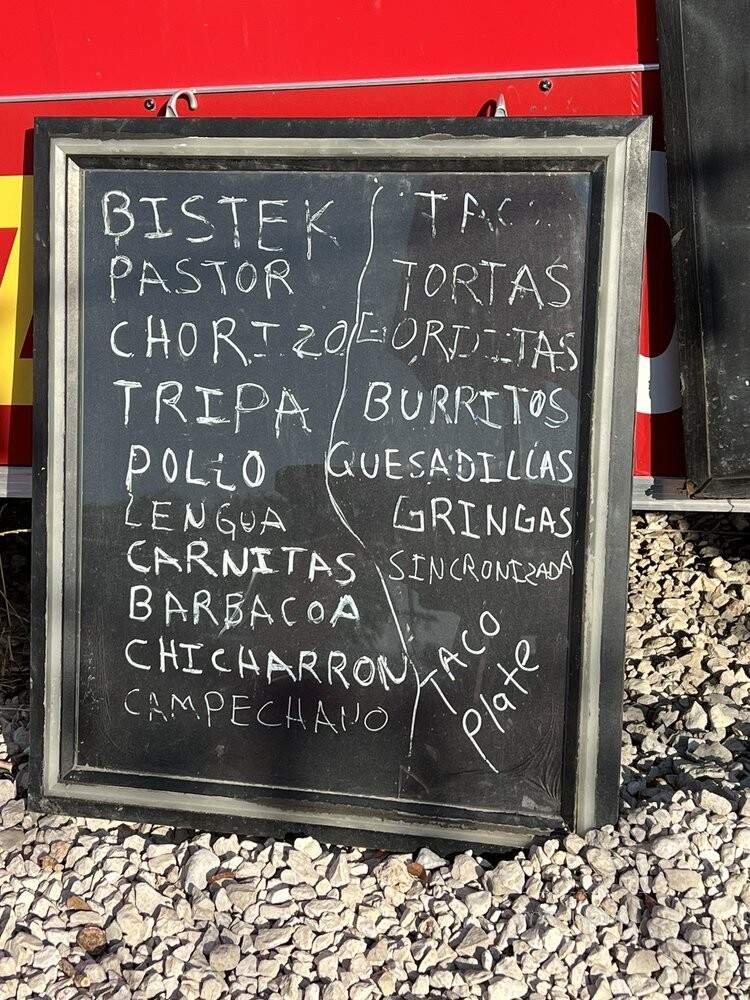 BISTEK
PASTOR
CHORIZO
TRIPA
POLLO
LENGUA
CARNITAS
BARBACOA
CHICHARRON
CAMPECHANO
TAC
TORTAS
GORDITAS
BURRITOS
QUESADILLAS
GRINGAS
SINCRONIZADA
TACO
Plate